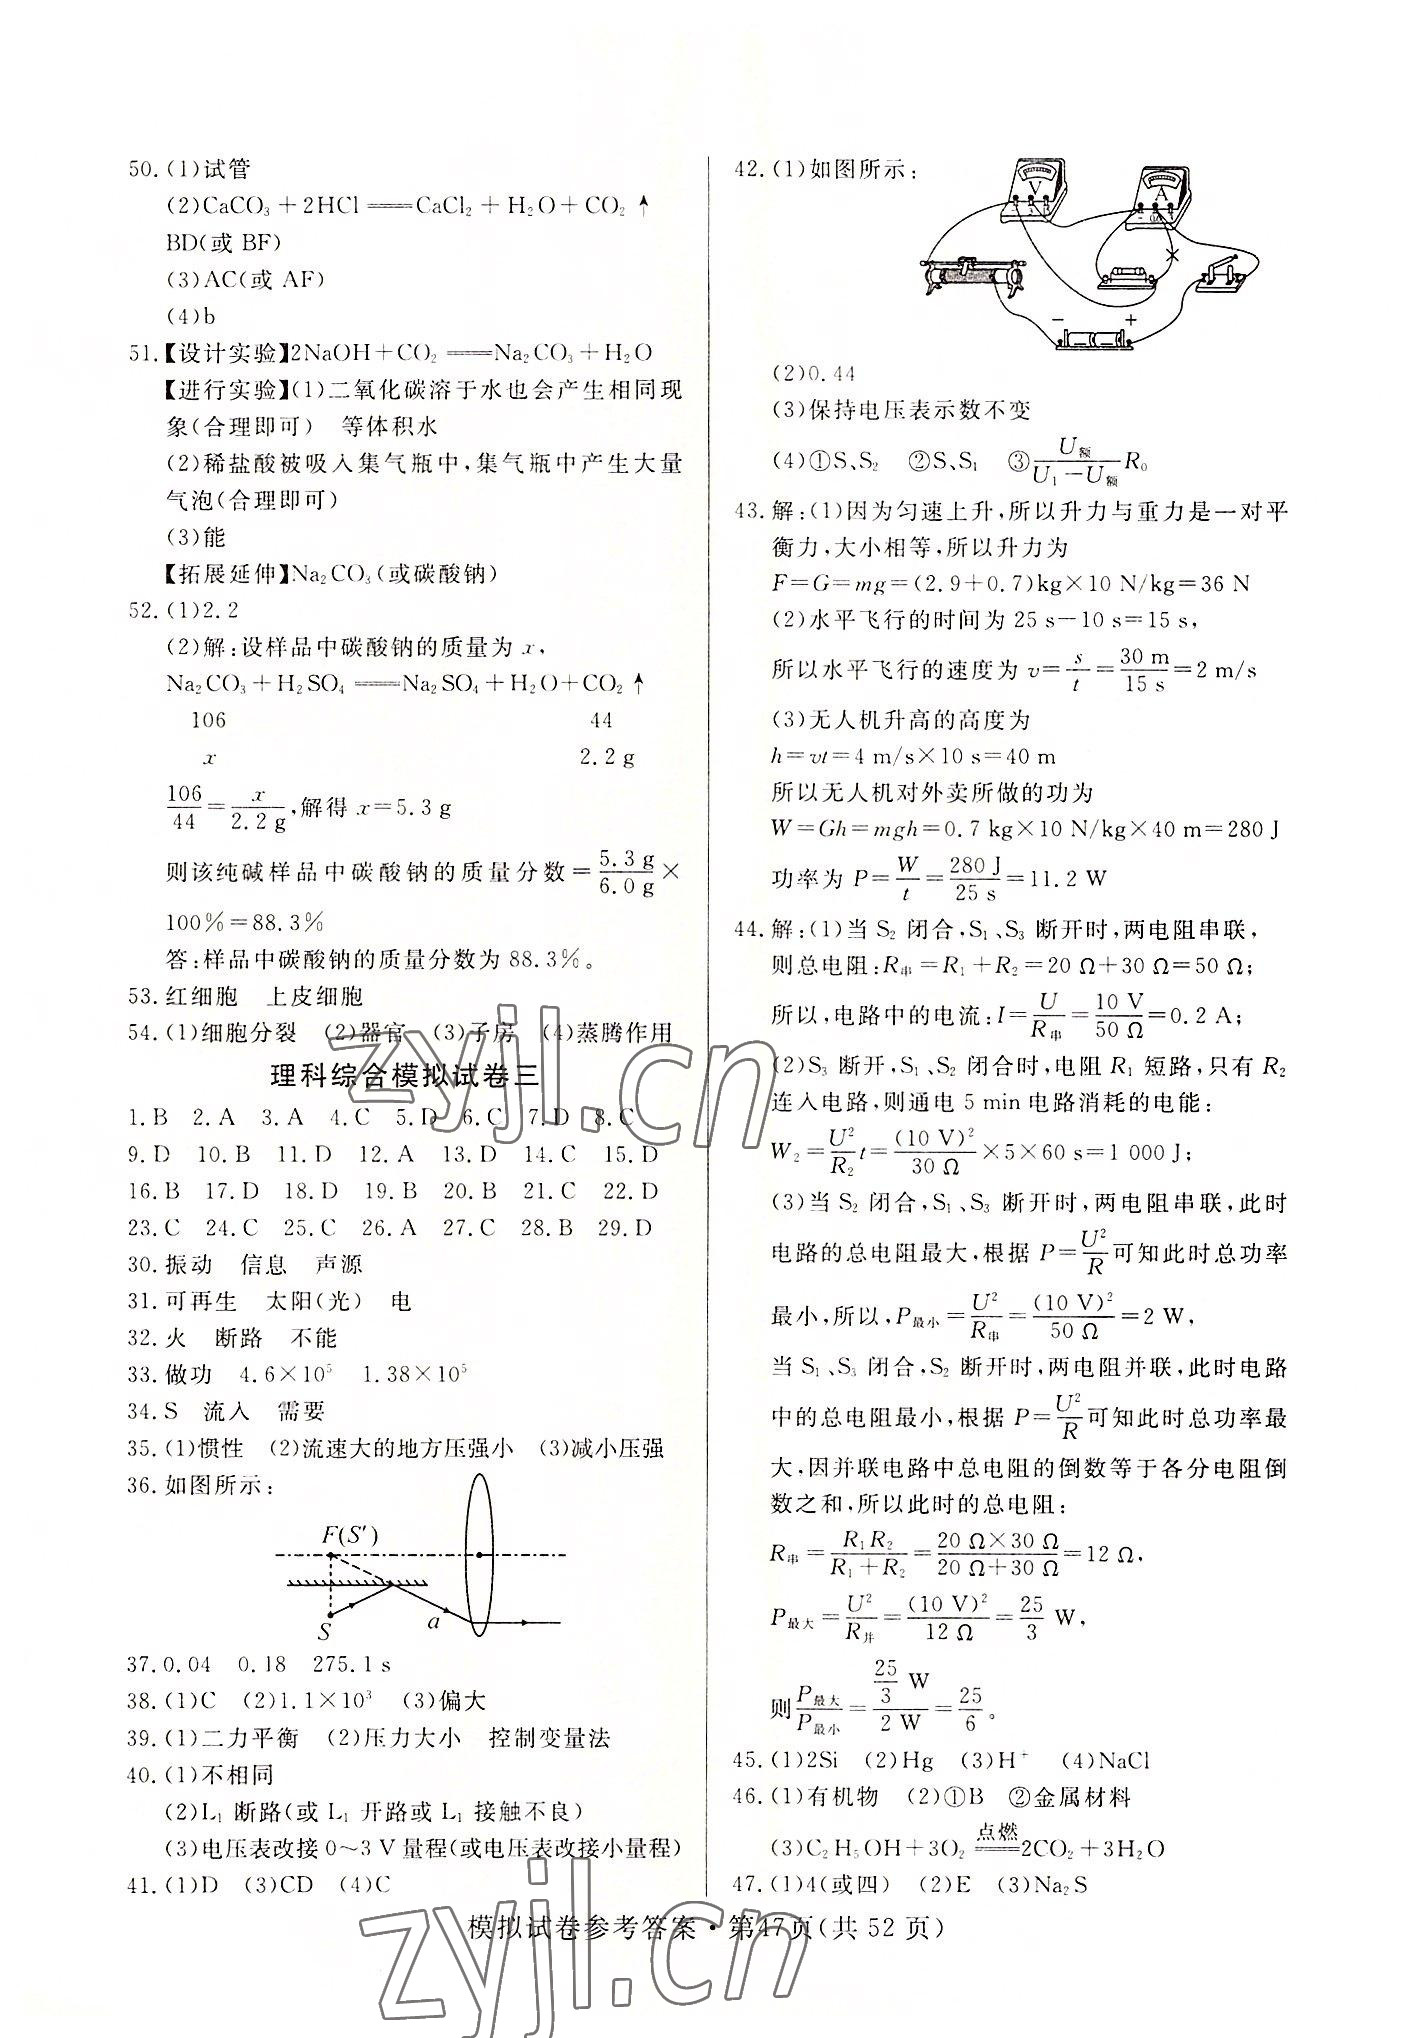 50.(1)试管
(2)CaCO₃+2HCl══CaCl₂+H₂O+CO₂↑
BD(或 BF)
(3)AC(或 AF)
(4)b
51.【设计实验】2NaOH+CO₂══Na₂CO₃+H₂O
【进行实验】(1)二氧化碳溶于水也会产生相同现
象(合理即可) 等体积水
(2)稀盐酸被吸入集气瓶中,集气瓶中产生大量
气泡(合理即可)
(3)能
【拓展延伸】Na₂CO₃(或碳酸钠)
52.(1)2.2
(2)解:设样品中碳酸钠的质量为 x,
Na₂CO₃+H₂SO₄══Na₂SO₄+H₂O+CO₂↑
106 44
x 2.2 g
106/44=x/2.2 g,解得 x=5.3 g
则该纯碱样品中碳酸钠的质量分数=5.3 g/6.0 g×
100%=88.3%
答:样品中碳酸钠的质量分数为 88.3%。
53.红细胞 上皮细胞
54.(1)细胞分裂 (2)器官 (3)子房 (4)蒸腾作用
理科综合模拟试卷三
1.B 2.A 3.A 4.C 5.D 6.C 7.D 8.C
9.D 10.B 11.D 12.A 13.D 14.C 15.D
16.B 17.D 18.D 19.B 20.B 21.C 22.D
23.C 24.C 25.C 26.A 27.C 28.B 29.D
30.振动 信息 声源
31.可再生 太阳(光) 电
32.火 断路 不能
33.做功 4.6×10⁵ 1.38×10⁵
34.S 流入 需要
35.(1)惯性 (2)流速大的地方压强小 (3)减小压强
36.如图所示:
F(S′)
S
a
37.0.04 0.18 275.1 s
38.(1)C (2)1.1×10³ (3)偏大
39.(1)二力平衡 (2)压力大小 控制变量法
40.(1)不相同
(2)L₁ 断路(或 L₁ 开路或 L₁ 接触不良)
(3)电压表改接 0～3 V 量程(或电压表改接小量程)
41.(1)D (3)CD (4)C
42.(1)如图所示:
V
A
- +
(2)0.44
(3)保持电压表示数不变
(4)①S、S₂ ②S、S₁ ③U额/(U₁-U额)R₀
43.解:(1)因为匀速上升,所以升力与重力是一对平
衡力,大小相等,所以升力为
F=G=mg=(2.9+0.7)kg×10 N/kg=36 N
(2)水平飞行的时间为 25 s-10 s=15 s,
所以水平飞行的速度为 v=s/t=30 m/15 s=2 m/s
(3)无人机升高的高度为
h=vt=4 m/s×10 s=40 m
所以无人机对外卖所做的功为
W=Gh=mgh=0.7 kg×10 N/kg×40 m=280 J
功率为 P=W/t=280 J/25 s=11.2 W
44.解:(1)当 S₂ 闭合,S₁、S₃ 断开时,两电阻串联,
则总电阻:R串=R₁+R₂=20 Ω+30 Ω=50 Ω;
所以,电路中的电流:I=U/R串=10 V/50 Ω=0.2 A;
(2)S₃ 断开,S₁、S₂ 闭合时,电阻 R₁ 短路,只有 R₂
连入电路,则通电 5 min 电路消耗的电能:
W₂=U²/R₂ t=(10 V)²/30 Ω×5×60 s=1 000 J;
(3)当 S₂ 闭合,S₁、S₃ 断开时,两电阻串联,此时
电路的总电阻最大,根据 P=U²/R可知此时总功率
最小,所以,P最小=U²/R串=(10 V)²/50 Ω=2 W,
当 S₁、S₃ 闭合,S₂ 断开时,两电阻并联,此时电路
中的总电阻最小,根据 P=U²/R可知此时总功率最
大,因并联电路中总电阻的倒数等于各分电阻倒
数之和,所以此时的总电阻:
R串=R₁R₂/(R₁+R₂)=20 Ω×30 Ω/(20 Ω+30 Ω)=12 Ω,
P最大=U²/R并=(10 V)²/12 Ω=25/3 W,
则P最大/P最小=(25/3 W)/(2 W)=25/6。
45.(1)2Si (2)Hg (3)H⁺ (4)NaCl
46.(1)有机物 (2)①B ②金属材料
(3)C₂H₅OH+3O₂══点燃══2CO₂+3H₂O
47.(1)4(或四) (2)E (3)Na₂S
模拟试卷参考答案·第47页(共 52 页)
zyjl.cn
zyjl.cn